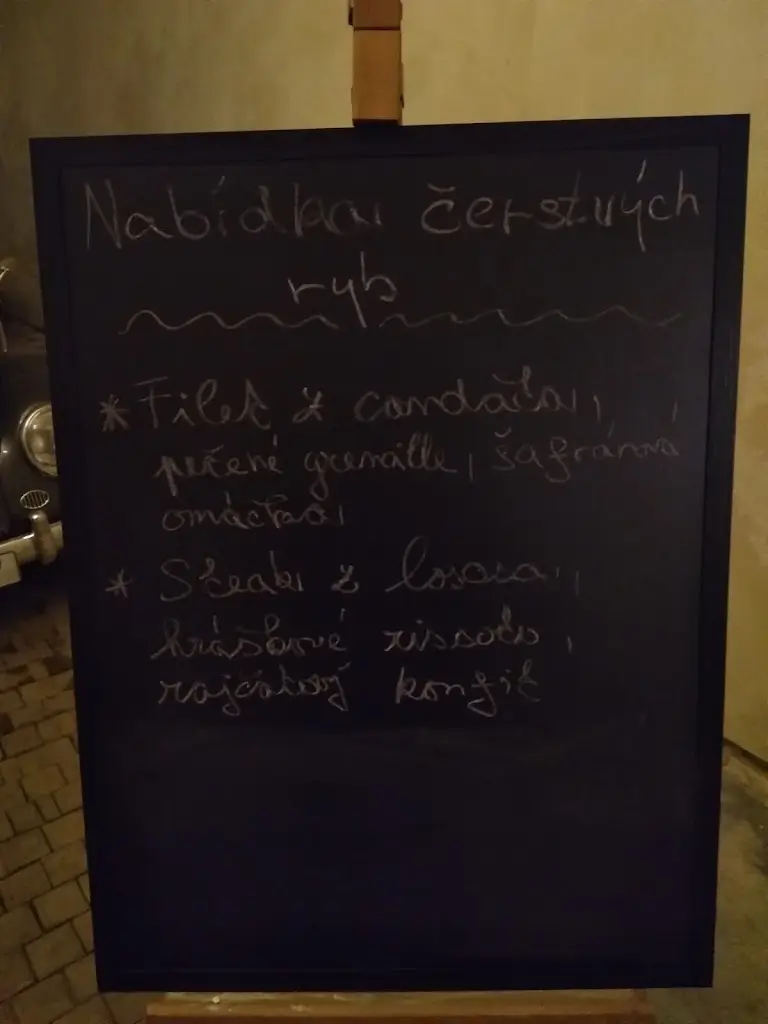 Nabídka čerstvých
ryb
* Filet z candáta,
pečené grenaille, šafránová
omáčka
* Steak z lososa,
hráškové rissoto,
rajčatový konfit